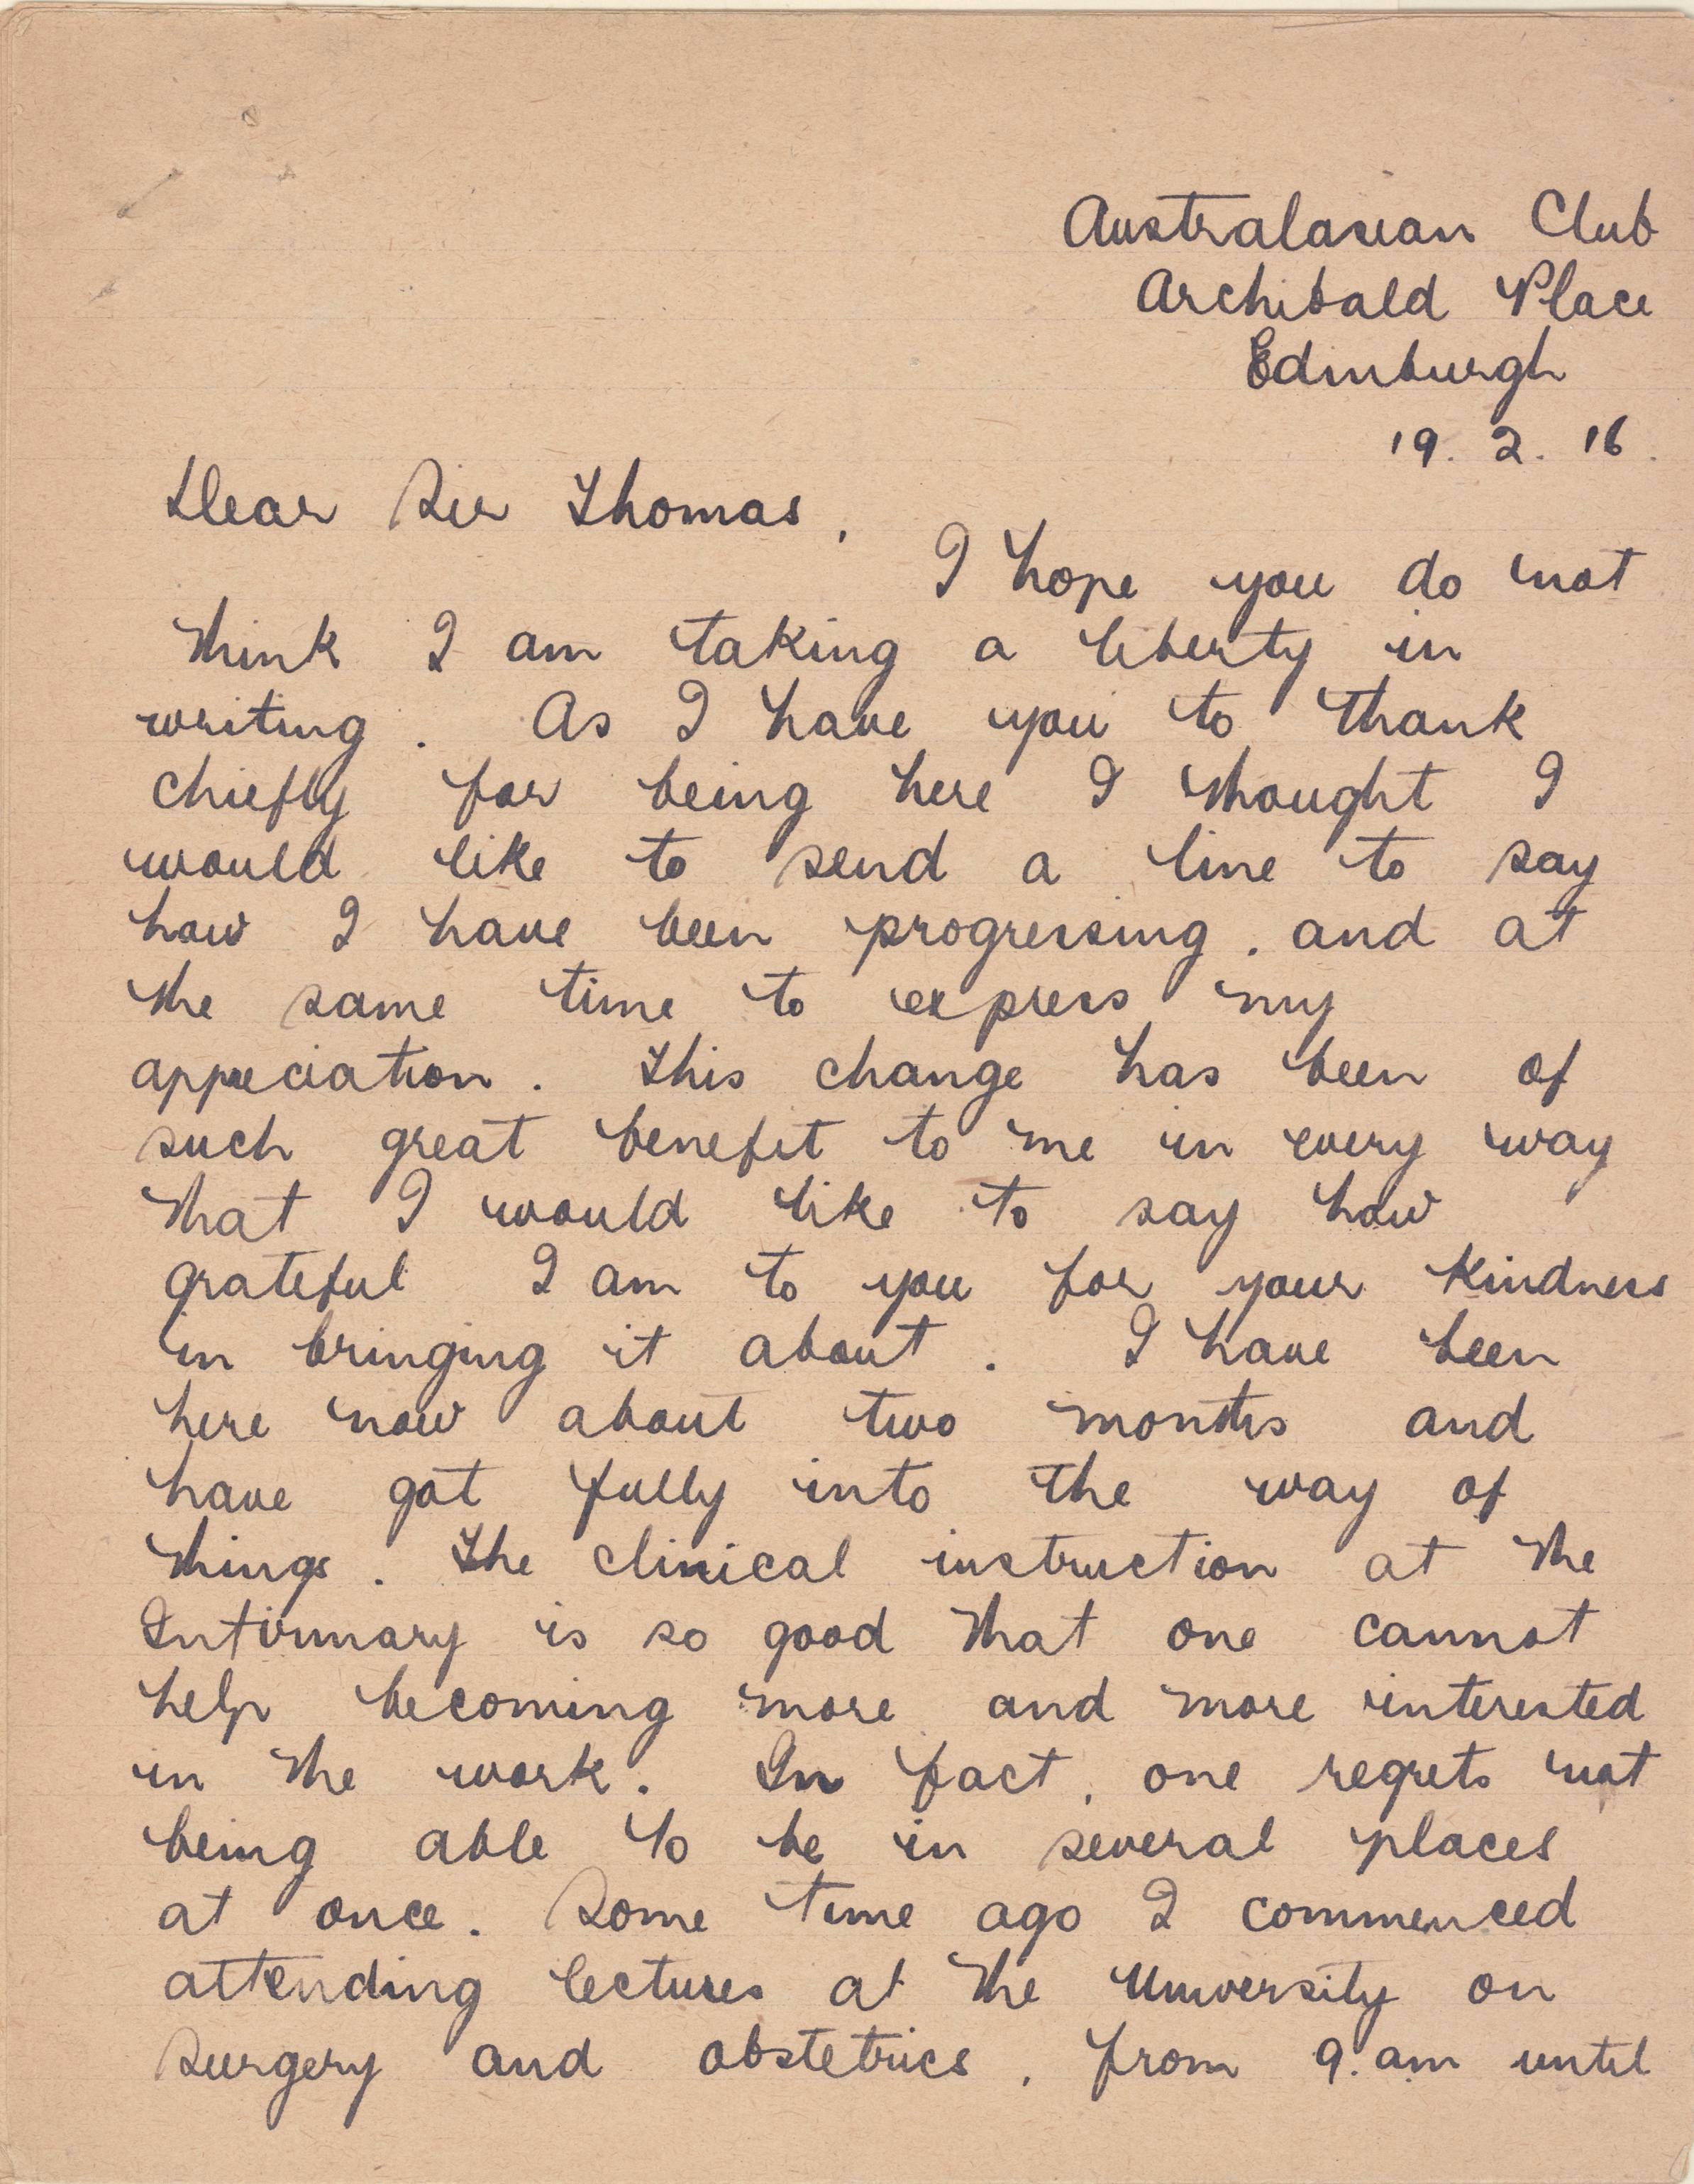 Australasian Club
Archibald Place
Edinburgh
19. 2. 16.
Dear Sir Thomas,
I hope you do not
think I am taking a liberty in
writing. As I have you to thank
chiefly for being here I thought I
would like to send a line to say
how I have been progressing, and at
the same time to express my
appreciation. This change has been of
such great benefit to me in every way
that I would like to say how
grateful I am to you for your kindness
in bringing it about. I have been
here now about two months and
have got fully into the way of
things. The clinical instruction at the
Infirmary is so good that one cannot
help becoming more and more interested
in the work. In fact, one regrets not
being able to be in several places
at once. Some time ago I commenced
attending lectures at the University on
surgery and obstetrics, from 9. am until